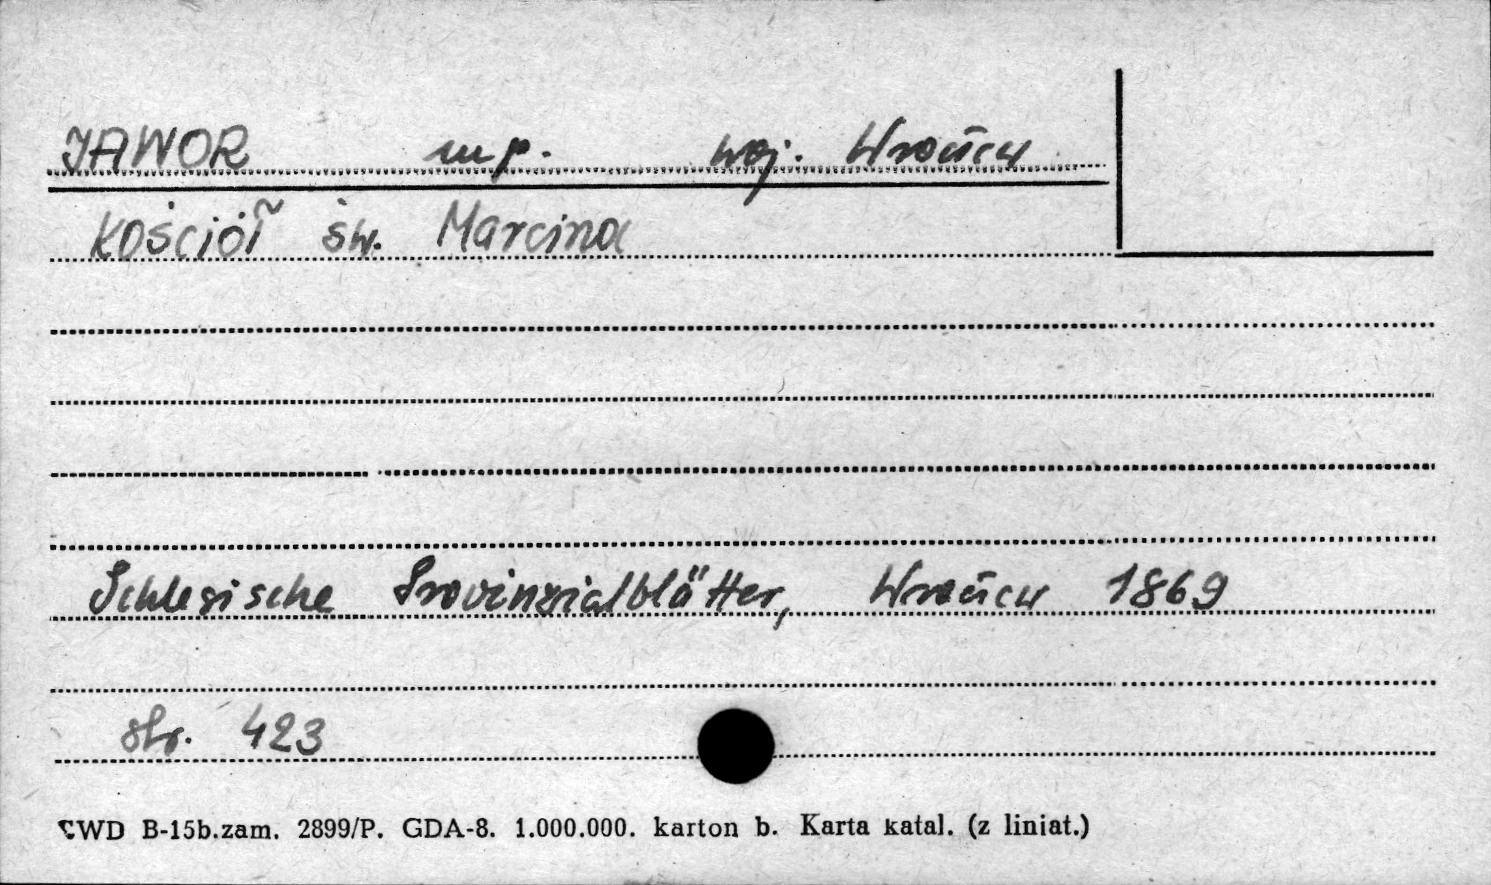 JAWOR m.p. woj. Wrocław
Kościół św. Marcina
Schlesische Provinzialblätter, Wrocław 1869
str. 423
CWD B-15b.zam. 2899/P. GDA-8. 1.000.000. karton b. Karta katal. (z liniat.)